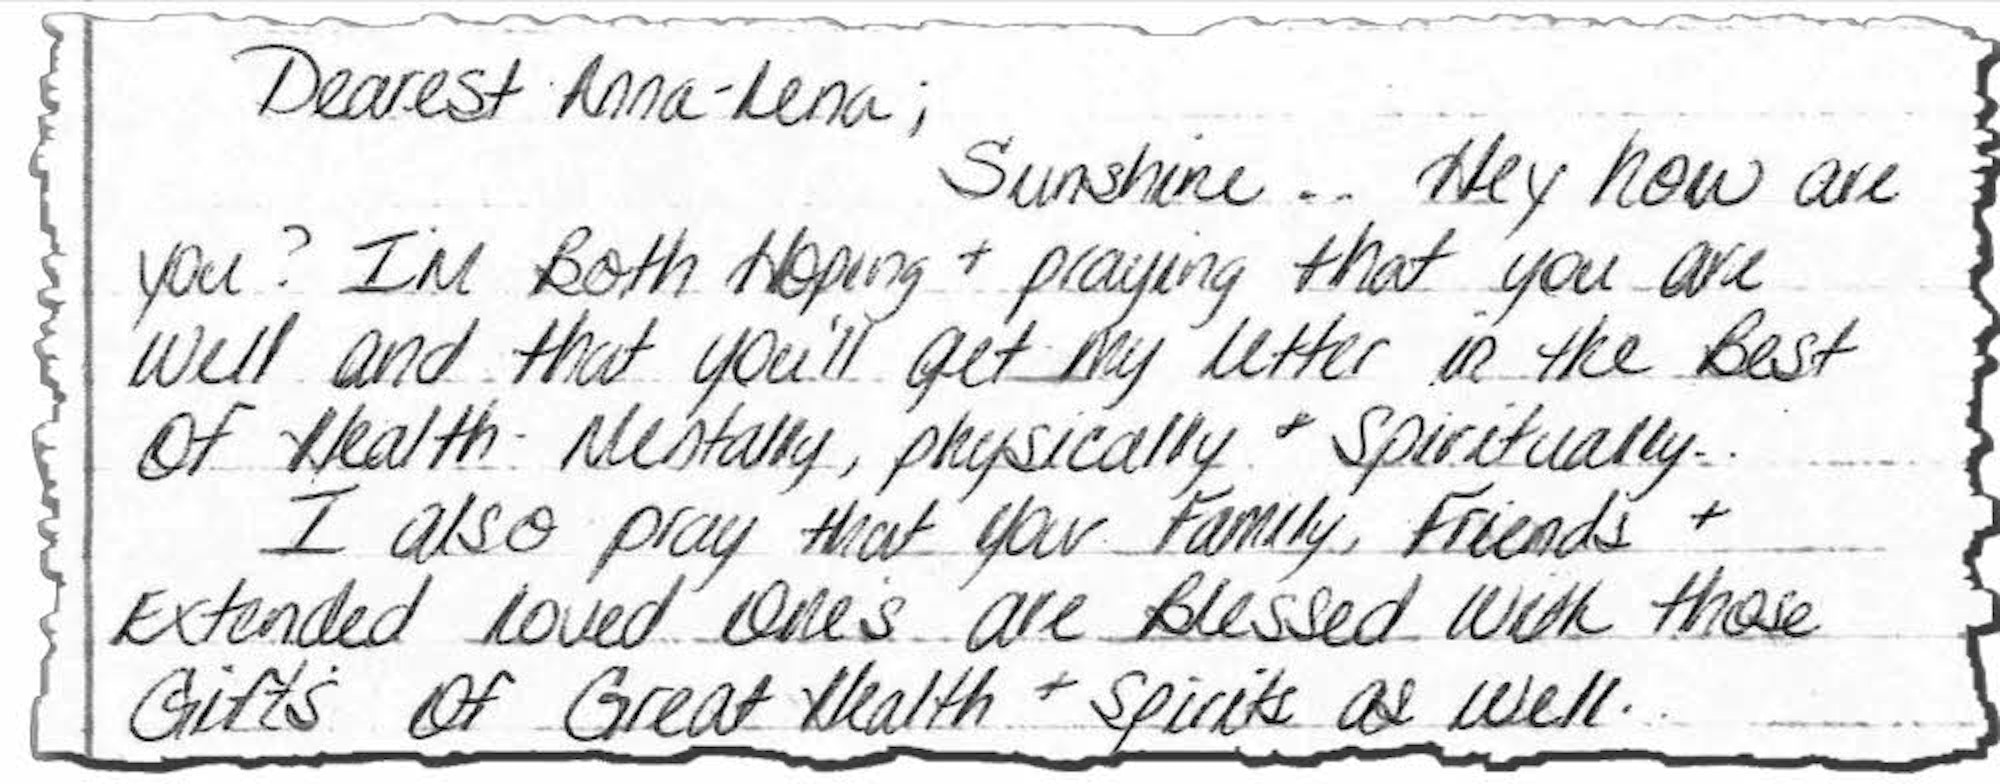 Dearest Anna-Lena;
Sunshine... Hey how are
you? I'M Both Hoping + praying that you are
well and that you'll get My letter in the Best
Of Health- Mentally, physically + Spiritually..
I also pray that your Family, Friends +
Extended Loved One's are Blessed with those
Gift's Of Great Health + Spirits as well.